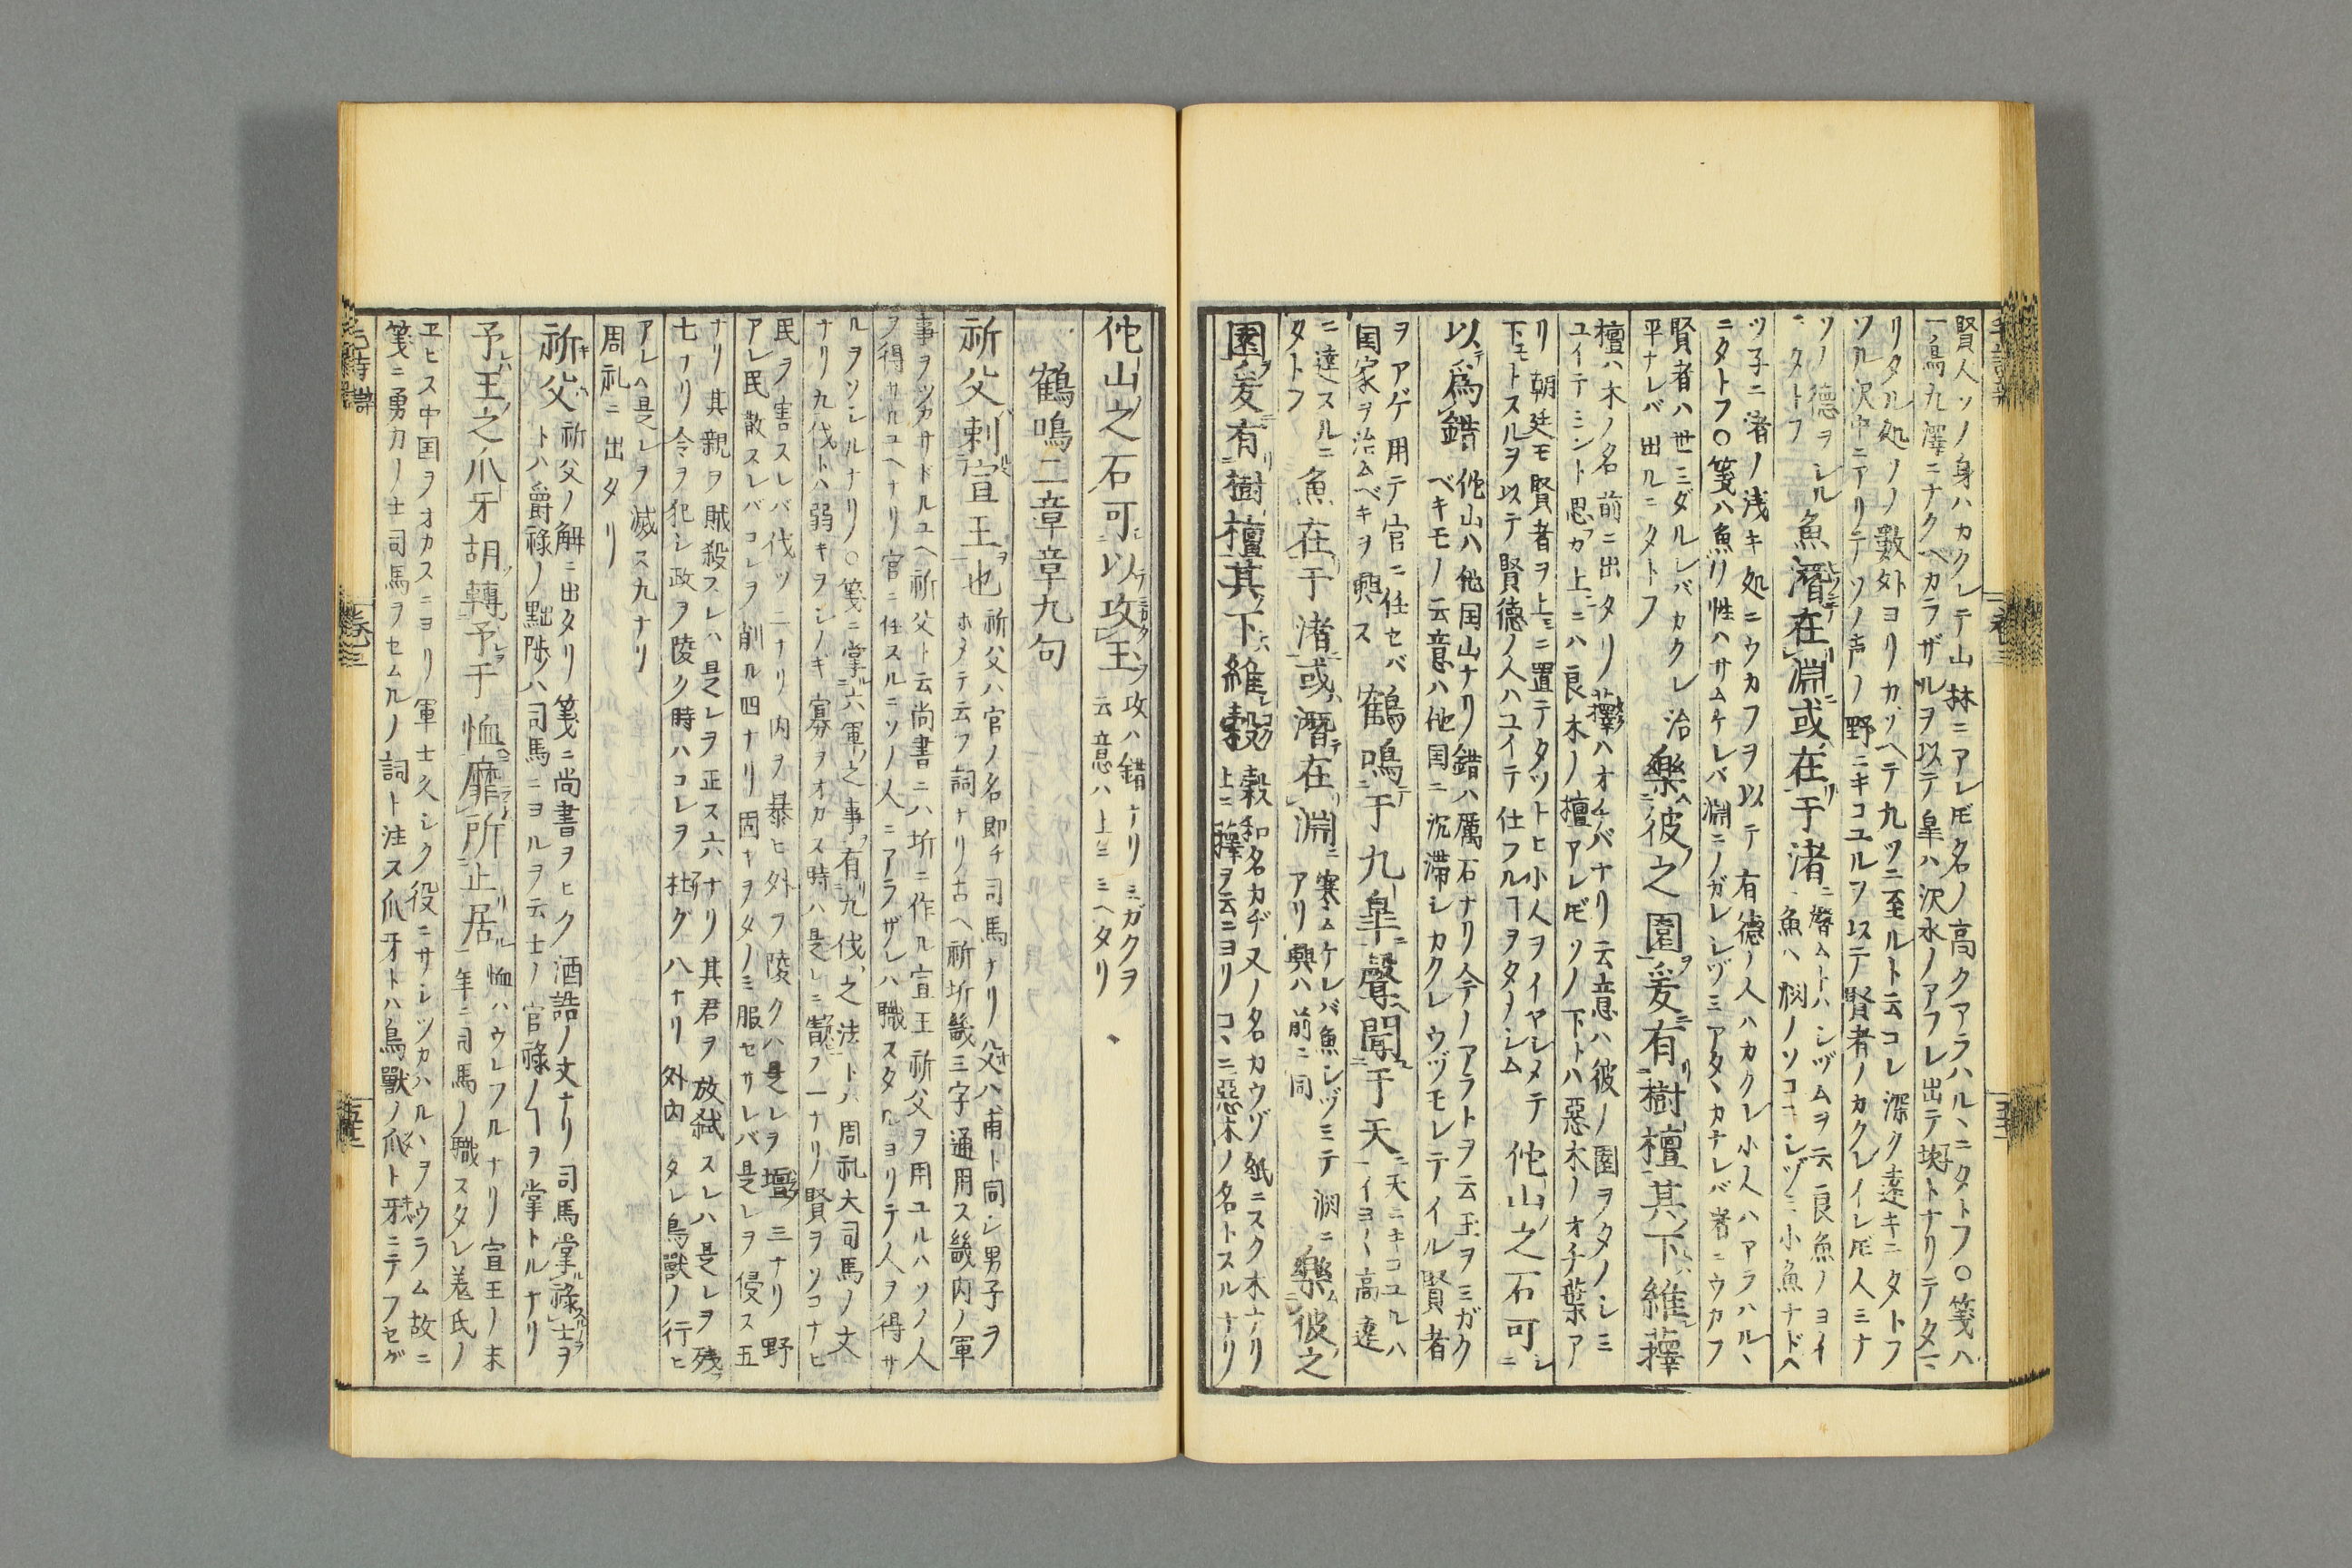 賢人ソノ身ハカクレテ山林ニアレ𪜈名ノ高クアラハルヽニタトフ○箋ハ
一鳥九澤ニナクヘカラザルヲ以テ皐ハ沢水ノアフレ出テ坎トナリテタマ
リタル処ソノ數外ヨリカソヘテ九ツニ至ルト云コレ深ク遠キニタトフ
ソハ沢中ニアリテソノ声ノ野ニキコユルヲ以テ賢者ノカクレイレ𪜈人ミナ
ソノ德ヲシル
ニタトフ
魚潛在淵或在于渚
潛ムトハシヅムヲ云良魚ノヨイ
魚ハ渕ノソコニシヅミ小魚ナドヘ
ツ子ニ渚ノ浅キ処ニウカフヲ以テ有德ノ人ハカクレ小人ハアラハルヽ
ニタトフ○箋ハ魚ノ性ハサムケレバ淵ニノガレシヅミアタヽカナレバ渚ニウカフ
賢者ハ世ミダルレバカクレ治
平ナレバ出ルニタトフ
樂彼之園爰有樹檀其下維蘀
檀ハ木ノ名前ニ出タリ蘀ハオチバナリ云意ハ彼ノ園ヲタノシミ
ユイテミント思フカ上ニハ良木ノ檀アレ𪜈ソノ下トハ惡木ノオチ葉ア
リ朝廷モ賢者ヲ上ミニ置テタツトヒ小人ヲイヤシメテ
下モトスルヲ以テ賢德ノ人ハユイテ仕フルヿヲタノシム
他山之石可
以爲錯
他山ハ他国山ナリ錯ハ厲石ナリ今ノアラトヲ云玉ヲミガク
ベキモノ云意ハ他国ニ沉滞シカクレウヅモレテイル賢者
ヲアゲ用テ官ニ任セバ
国家ヲ治ムベキヲ興ス
鶴鳴于九皐聲聞于天
天ニキコユルハ
イヨ〱高遠
ニ達スルニ
タトフ
魚在于渚或潛在淵
寒ムケレバ魚シヅミテ渕ニ
アリ興ハ前ニ同
樂彼之
園爰有樹檀其下維穀
穀和名カヂ又ノ名カウヅ紙ニスク木ナリ
上ニ蘀ヲ云ニヨリコヽニ惡木ノ名トスルナリ
他山之石可以攻玉
攻ハ錯ナリミガクヲ
云意ハ上ニミヘタリ
鶴鳴二章章九句
祈父刺宣王也
祈父ハ官ノ名即チ司馬ナリ父ハ甫ト同シ男子ヲ
ホメテ云フ詞ナリ古ヘ祈圻畿三字通用ス畿内ノ軍
事ヲツカサドルユヘ祈父ト云尚書ニハ圻ニ作ル宣王祈父ヲ用ユルハソノ人
ヲ得サルユヘナリ官ニ任スルニソノ人ニアラザレハ職スタルヨリテ人ヲ得サ
ルヲソシルナリ○箋ニ掌六軍之事有九伐之法トハ周礼大司馬ノ文
ナリ九伐トハ弱キヲシノギ寡ヲオカス時ハ是レニ眚フ一ナリ賢ヲソコナヒ
民ヲ害スレバ伐ツ二ナリ内ヲ暴ヒ外フ陵クハ是レヲ壇三ナリ野
アレ民散スレバコレヲ削ル四ナリ固キヲタノミ服セサレバ是レヲ侵ス五
ナリ其親ヲ賊殺スレハ是レヲ正ス六ナリ其君ヲ放弑スレハ是レヲ残
七フリ令ヲ犯シ政ヲ陵ク時ハコレヲ杜グ八ナリ外内タレ鳥獸ノ行ヒ
アレハ是レヲ滅ス九ナリ
周礼ニ出タリ
祈父
祈父ノ解ニ出タリ箋ニ尚書ヲヒク酒誥ノ文ナリ司馬掌祿士ヲ
トハ爵祿ノ黜陟ハ司馬ニヨルヲ云士ノ官祿ノヿヲ掌トルナリ
予王之爪牙胡轉予于恤靡所止居
恤ハウレフルナリ宣王ノ末
年ニ司馬ノ職スタレ羗氏ノ
ヱヒス中国ヲオカスニヨリ軍士久シク役ニサシツカハルヽヲウラム故ニ
箋ニ勇力ノ士司馬ヲセムルノ詞ト注ス爪牙トハ鳥獸ノ爪ト牙ニテフセグ
毛詩
卷三